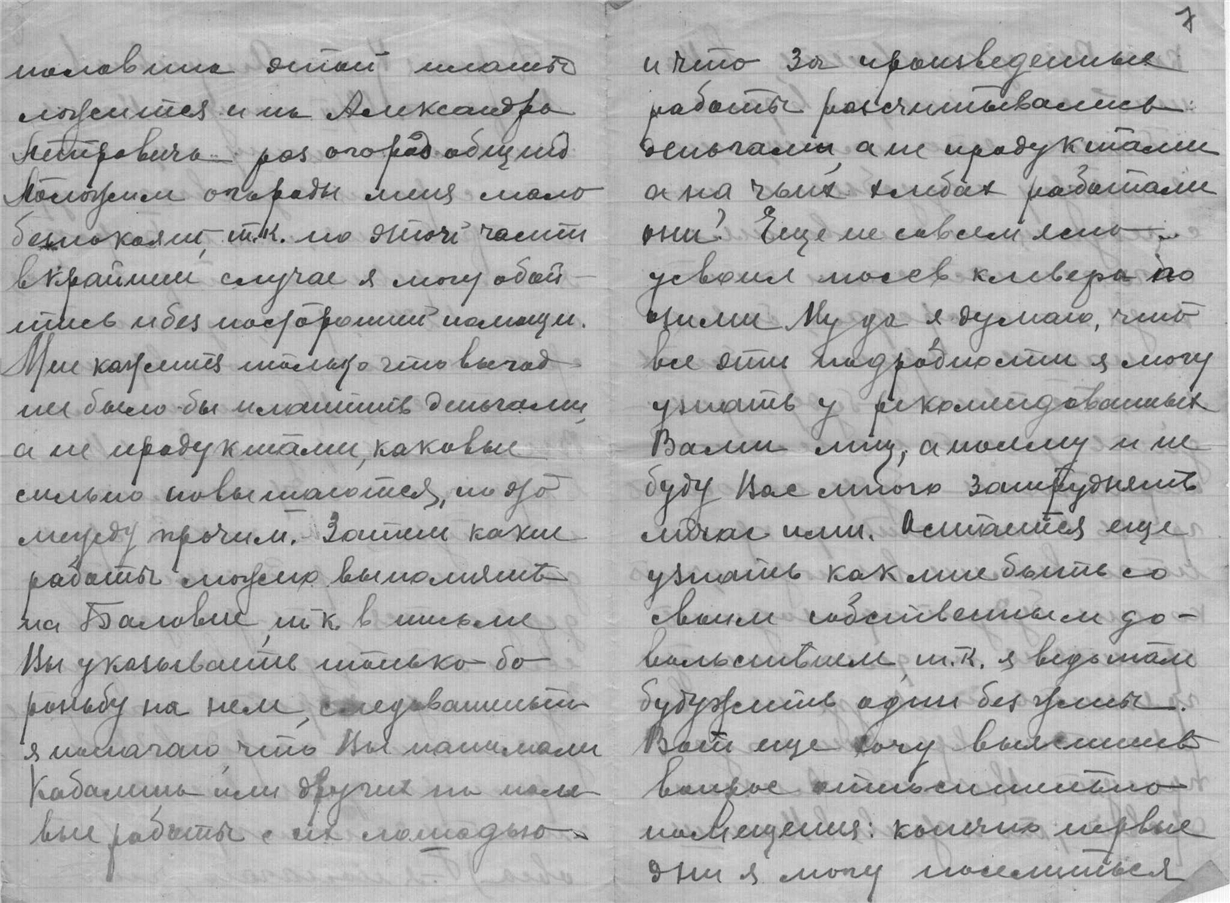 половина этой платы
ложится и на Александра
Петровича раз огород общий
Положим огороды меня мало
безпокоят, т.к. по этой части
в крайнем случае я могу обой-
тись и без посторонней помощи.
Мне кажется только что выгод
ней было-бы платить деньгами,
а не продуктами, каковые
сильно повышаются, но это
между прочим. Затем какие
работы можно выполнять
на Баловне, т к в письме
Вы указываете только бо
роньбу на нем, следовательно
я полагаю, что Вы нанимали
Кабалина или других на поле
вые работы с их лошадью
7
и что за произведенные
работы расчитывались
деньгами, а не продуктами
а на чьих хлебах работали
они? Еще не совсем ясно
усвоил посев клевера по
озими Ну да я думаю, что
все эти подробности я могу
узнать у рекомендованных
Вами лиц, а потому и не
буду Вас много затруднять
сейчас ими. Остается еще
узнать как мне быть со
своим собственным до-
вольствием т.к. я ведь там
буду жить один без жены.
Вот еще хочу выяснить
вопрос относительно
помещения: конечно первые
дни я могу поселиться